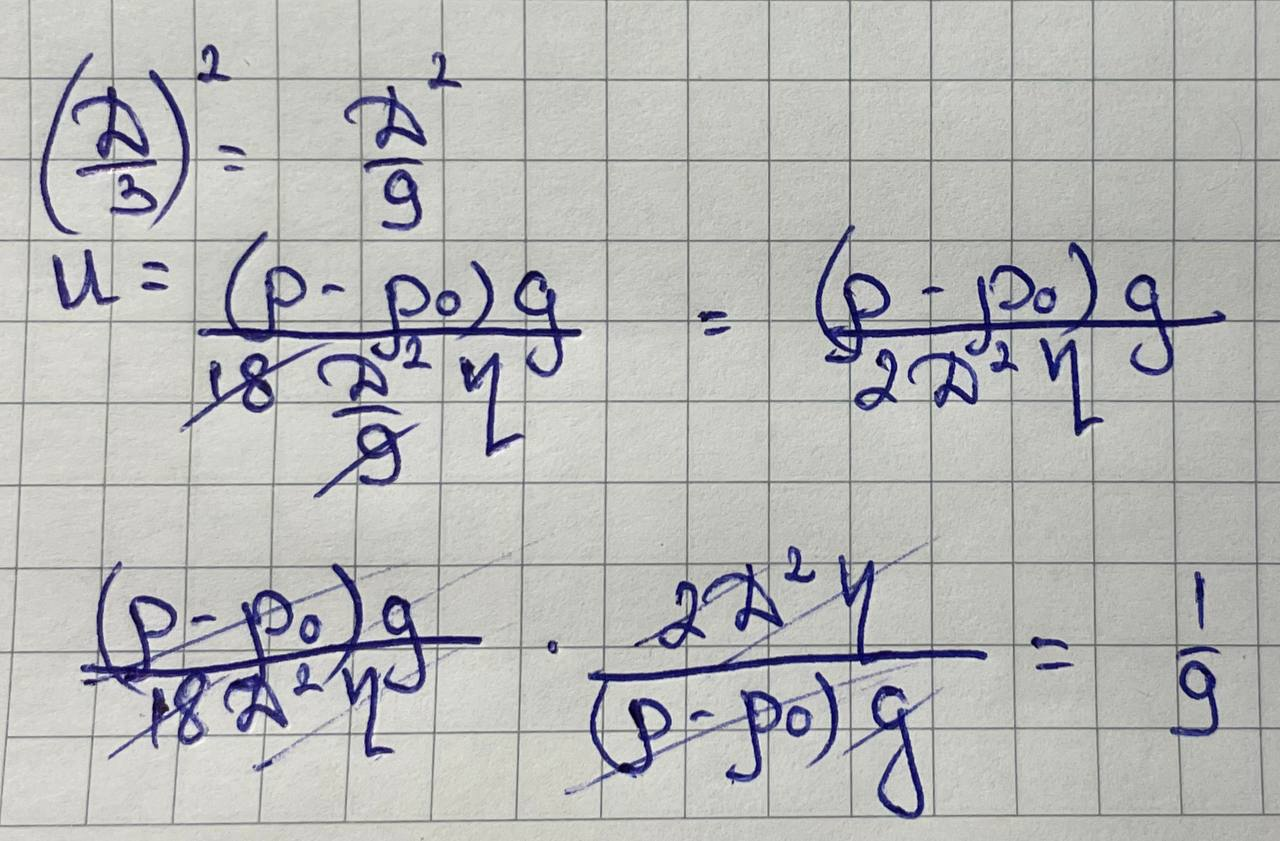 (D/3)² = D²/9
u = (ρ - ρ₀)g / (18 D²/9 η) = (ρ - ρ₀)g / (2D²η)
(ρ - ρ₀)g / (18D²η) · 2D²η / ((ρ - ρ₀)g) = 1/9